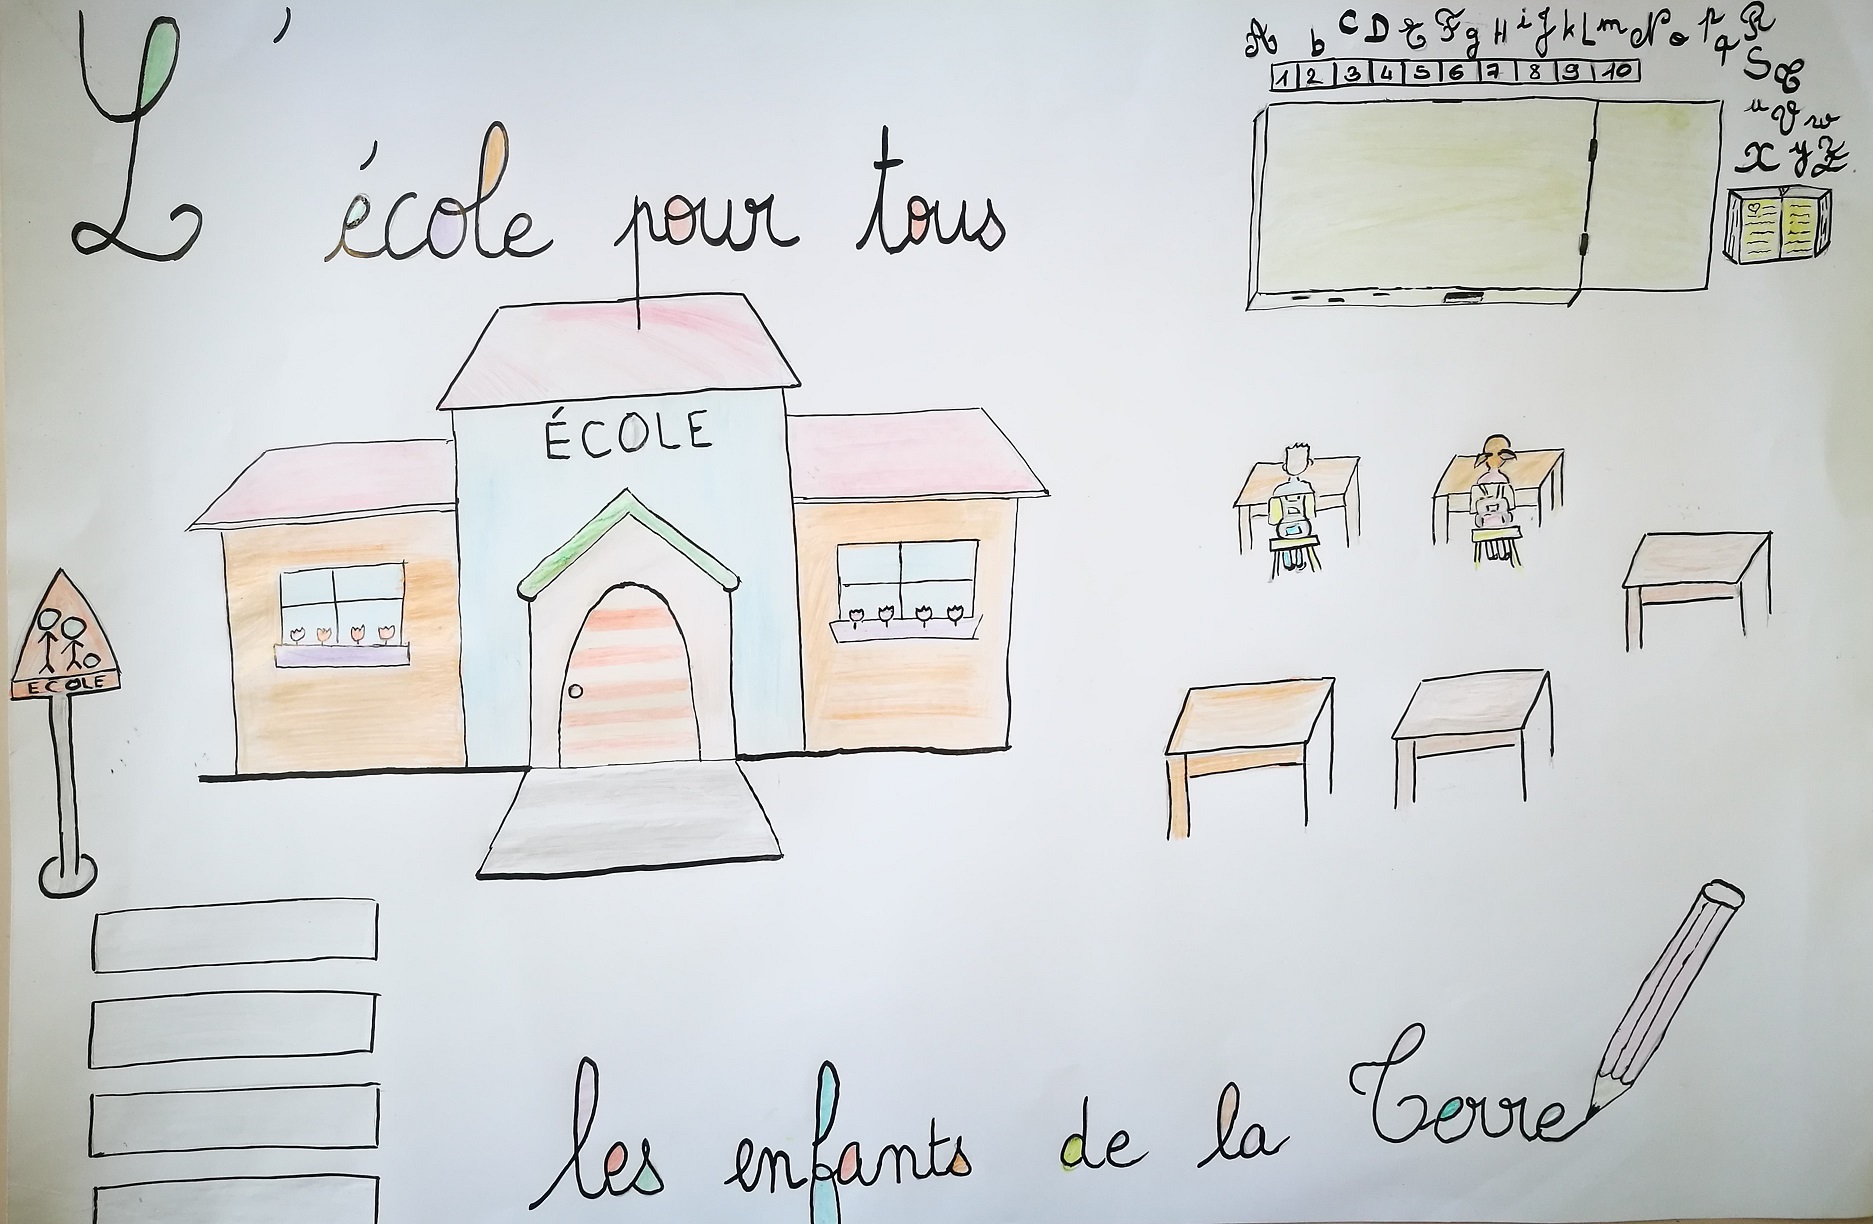 L'école pour tous
A b C D E F g H i J k L m N o p q R
S T
u V w
X y Z
1 2 3 4 5 6 7 8 9 10
ÉCOLE
ECOLE
les enfants de la Terre